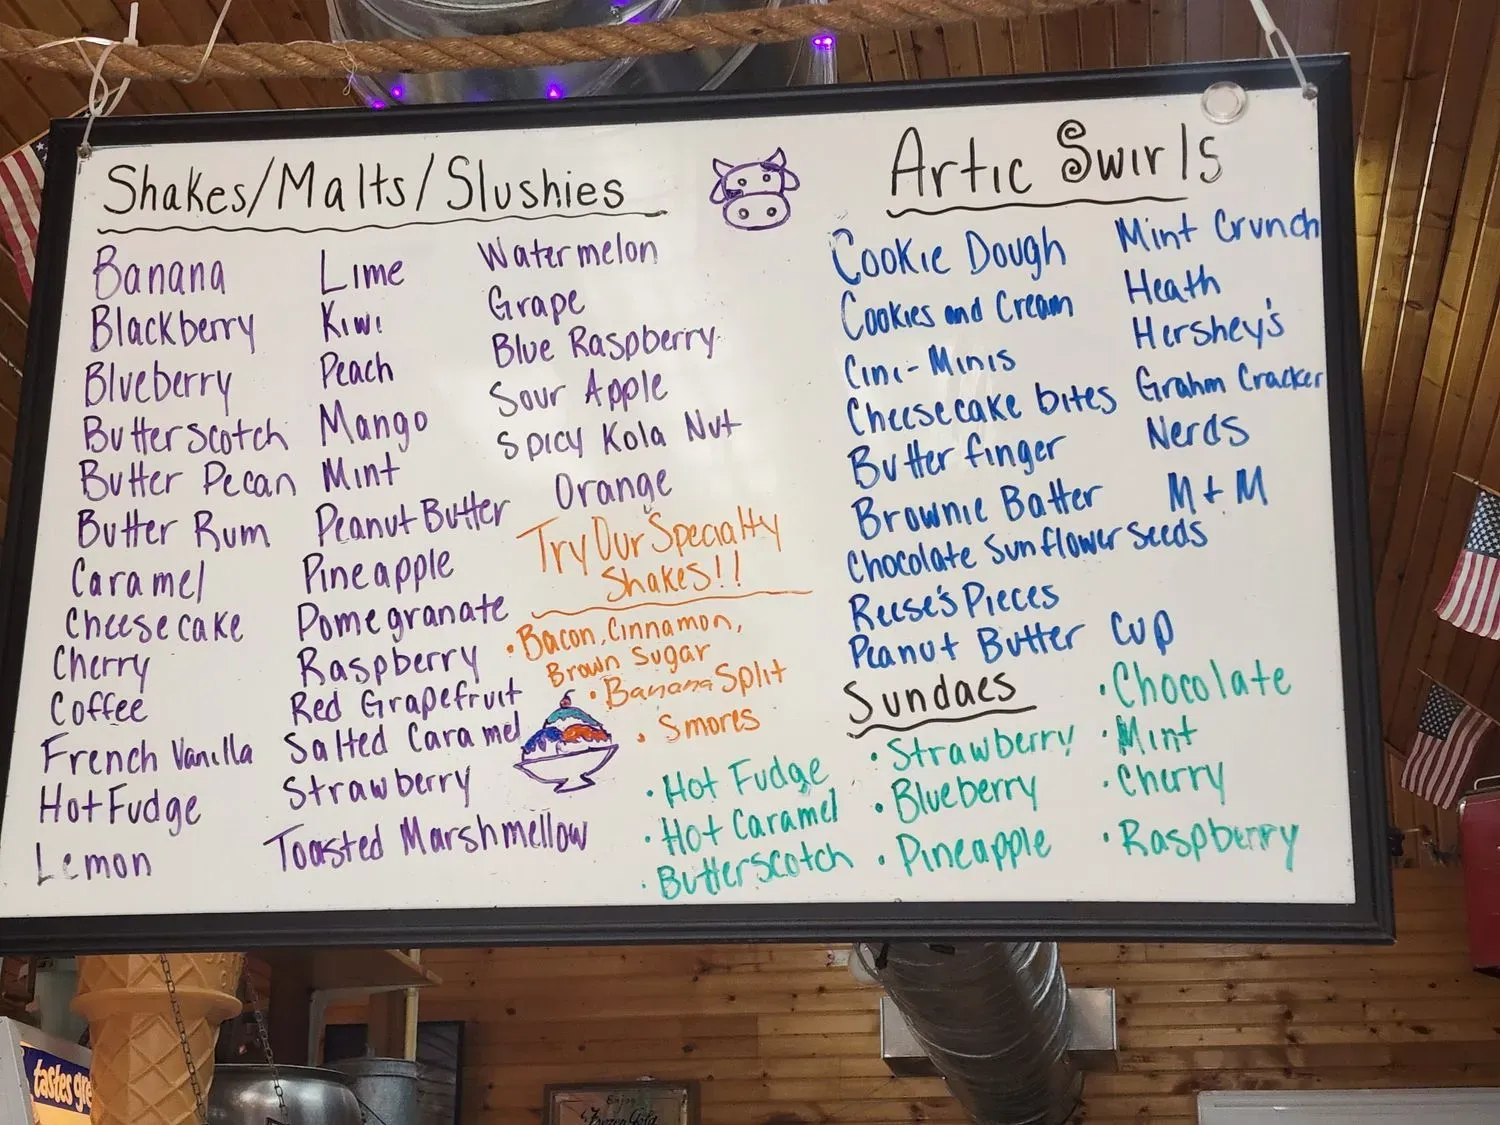 Shakes/Malts/Slushies
Banana
Blackberry
Blueberry
Butterscotch
Butter Pecan
Butter Rum
Caramel
Cheesecake
Cherry
Coffee
French Vanilla
Hot Fudge
Lemon
Lime
Kiwi
Peach
Mango
Mint
Peanut Butter
Pineapple
Pomegranate
Raspberry
Red Grapefruit
Salted Caramel
Strawberry
Toasted Marshmellow
Watermelon
Grape
Blue Raspberry
Sour Apple
Spicy Kola Nut
Orange
Try Our Specialty
Shakes!!
• Bacon, Cinnamon,
Brown Sugar
• Banana Split
• Smores
Artic Swirls
Cookie Dough
Cookies and Cream
Cini-Minis
Cheesecake bites
Butterfinger
Brownie Batter
Chocolate Sunflower Seeds
Reese's Pieces
Peanut Butter Cup
Mint Crunch
Heath
Hershey's
Grahm Cracker
Nerds
M + M
Sundaes
• Hot Fudge
• Hot Caramel
• Butterscotch
• Strawberry
• Blueberry
• Pineapple
• Chocolate
• Mint
• Cherry
• Raspberry
tastes gre
Enjoy